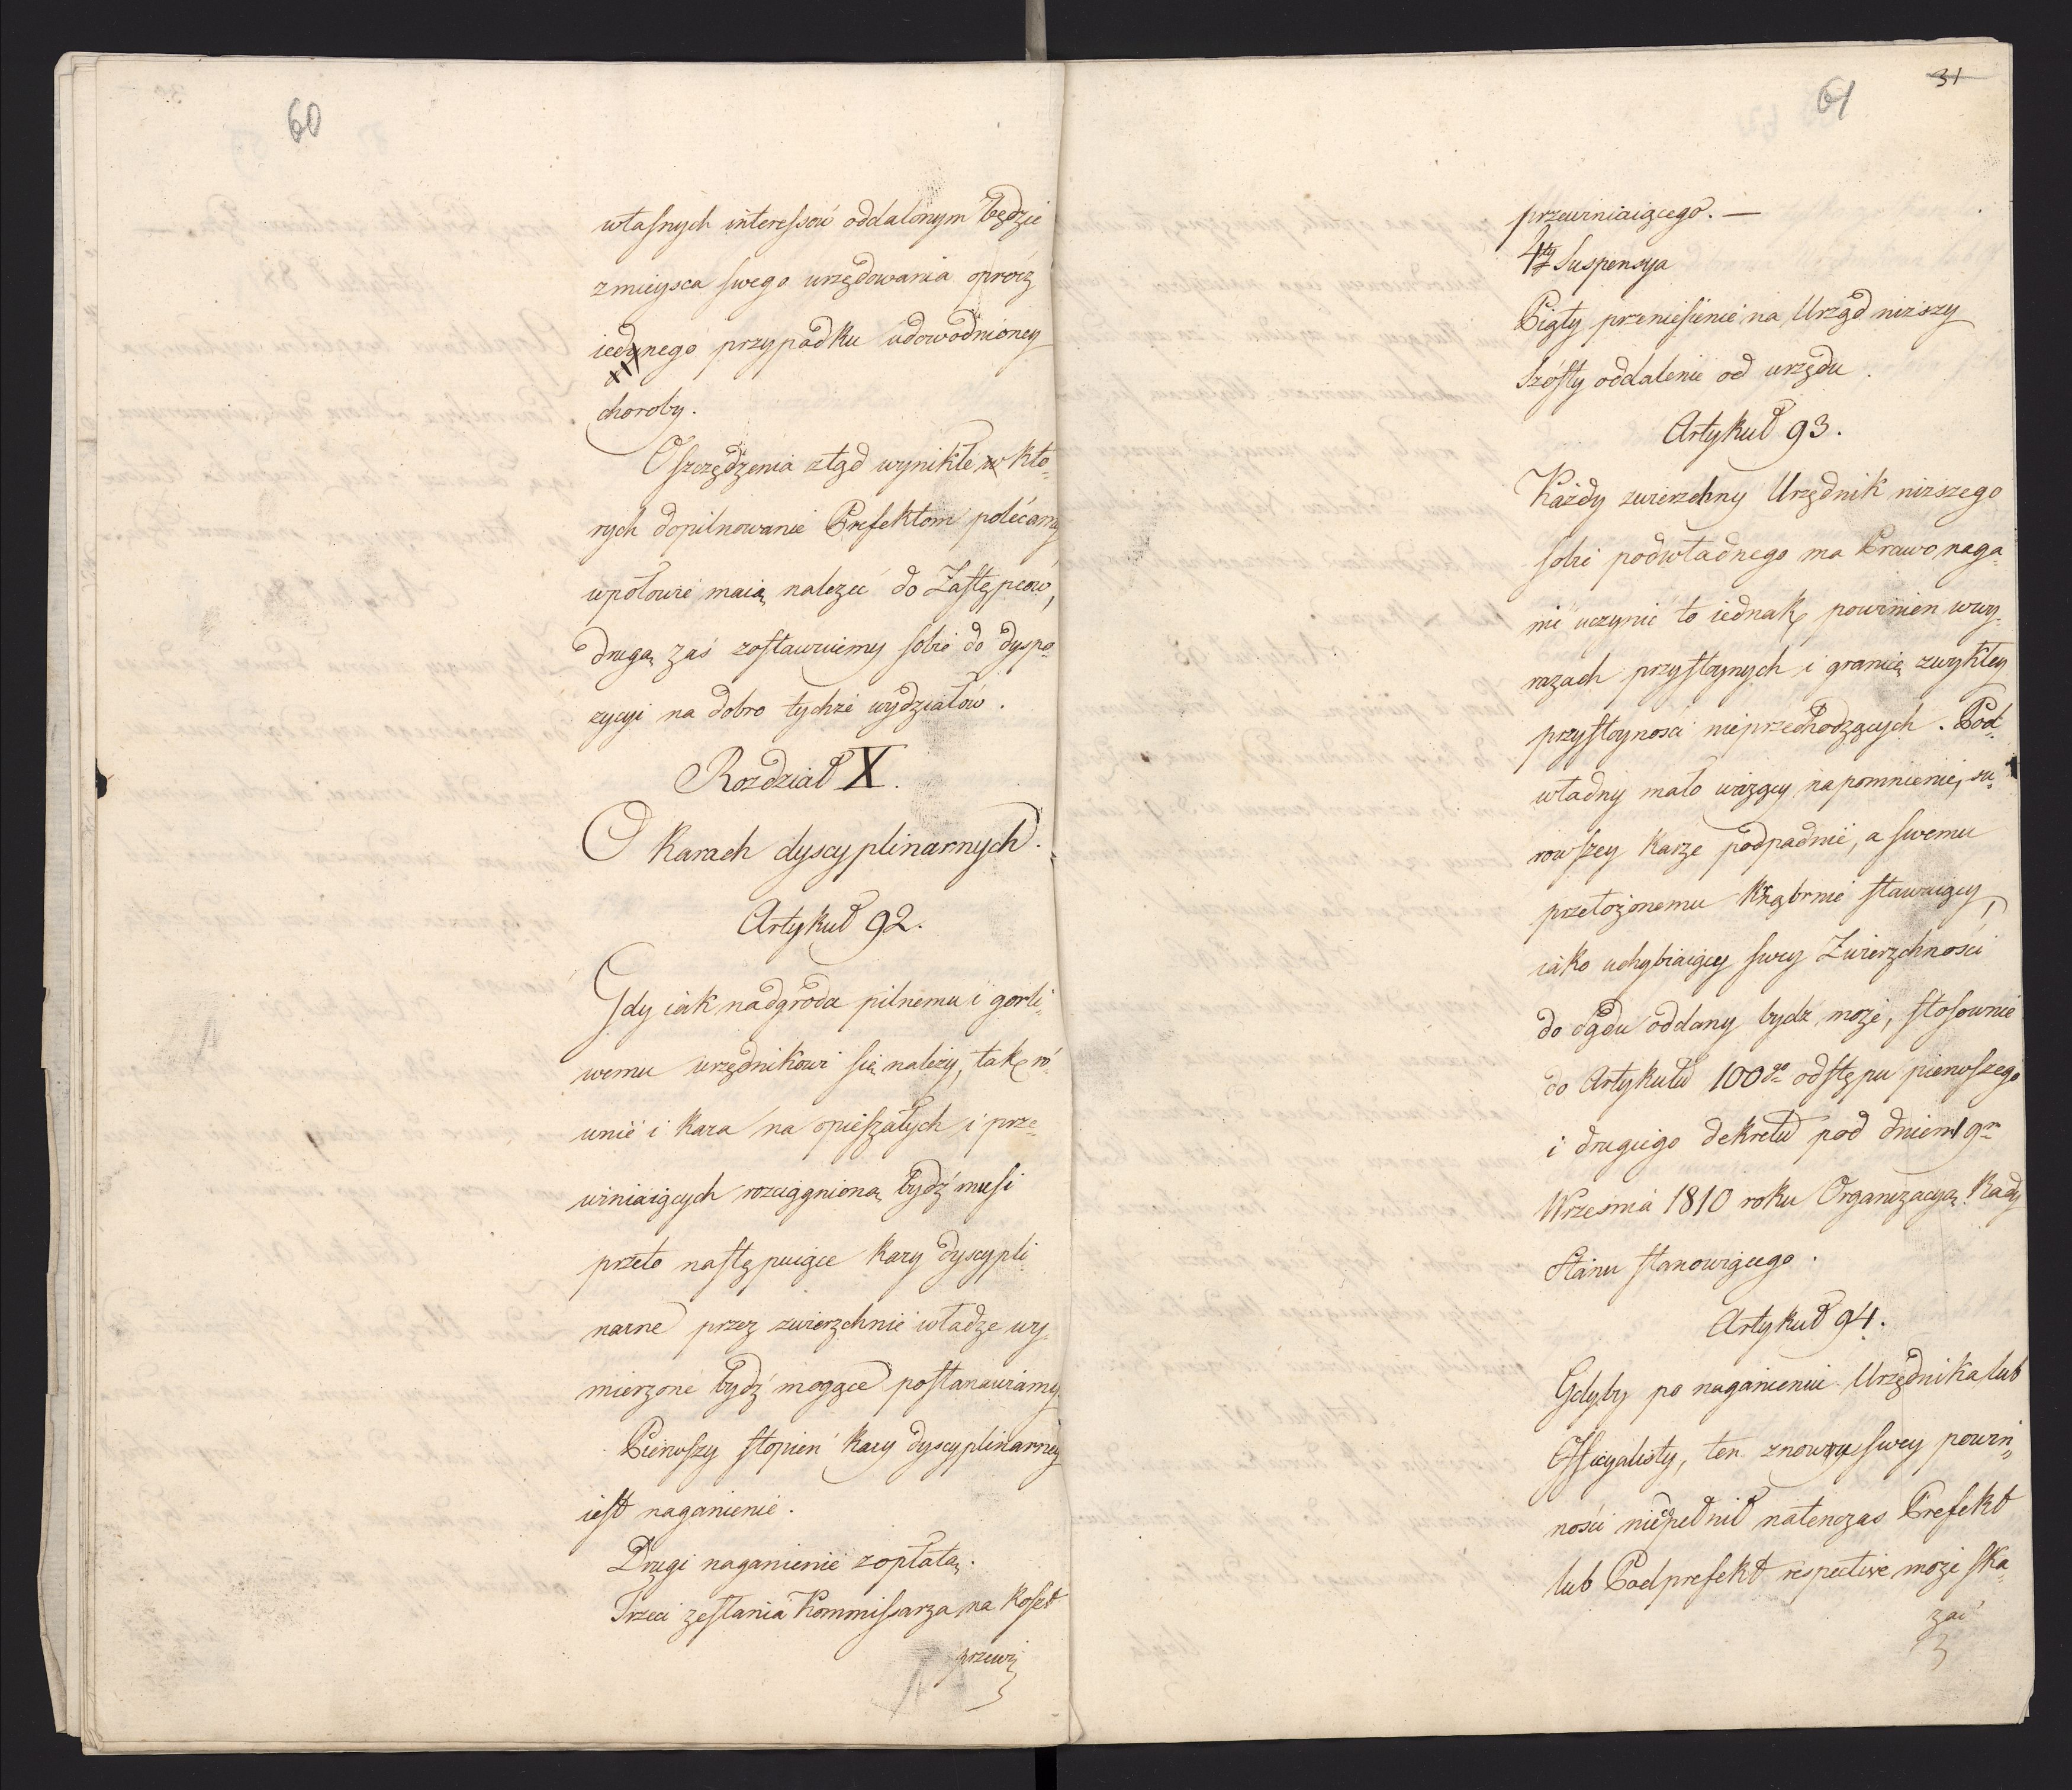 60
własnych interessów oddalonym będzie
z mieysca swego urzędowania oprócz
iedynego przypadku udowodnioney
choroby.
Oszczędzenia ztąd wynikłe w któ-
rych dopilnowanie Prefektom polecamy
w połowie maią należeć do Zastępców,
drugą zaś zostawuiemy sobie do dyspo-
zycyi na dobro tychże wydziałów.
Rozdział X.
O Karach dyscyplinarnych.
Artykuł 92.
Gdy iak nadgroda pilnemu i gorli-
wemu urzędnikowi się należy, tak ró-
wnie i kara na opieszałych i prze-
winiaiących rozciągnioną bydź musi
przeto następuiące kary dyscypli
narne przez zwierzchnie władze wy-
mierzone bydź mogące postanawiamy
Pierwszy stopień kary dyscyplinarney
iest naganienie.
Drugi naganienie z opłatą.
Trzeci zesłania Kommissarza na koszt
przewi
61
31
przewiniaiącego. —
4ty Suspensya
Piąty przeniesienie na Urząd niższy
Szósty oddalenie od urzędu.
Artykuł 93.
Każdy zwierzchny Urzędnik niższego
sobie podwładnego ma Prawo naga-
nić uczynić to iednak powinien w wy-
razach przystoynych i granic zwykłey
przystoyności nieprzechodzących. Pod-
władny mało ważący napomnienie, su-
rowszey karze podpadnie, a swemu
przełożonemu krąbrnie stawaiący,
iako uchybiaiący swey Zwierzchności
do sądu oddany bydź może, stosownie
do Artykułu 100go odstępu pierwszego
i drugiego dekretu pod dniem 19m
Września 1810 roku Organizacyą Rady
Stanu stanowiącego.
Artykuł 94.
Gdyby po naganieniu Urzędnika lub
Officyalisty, ten znowu swey powin-
ności niepełnił natenczas Prefekt
lub Podprefekt respective może ska-
zać